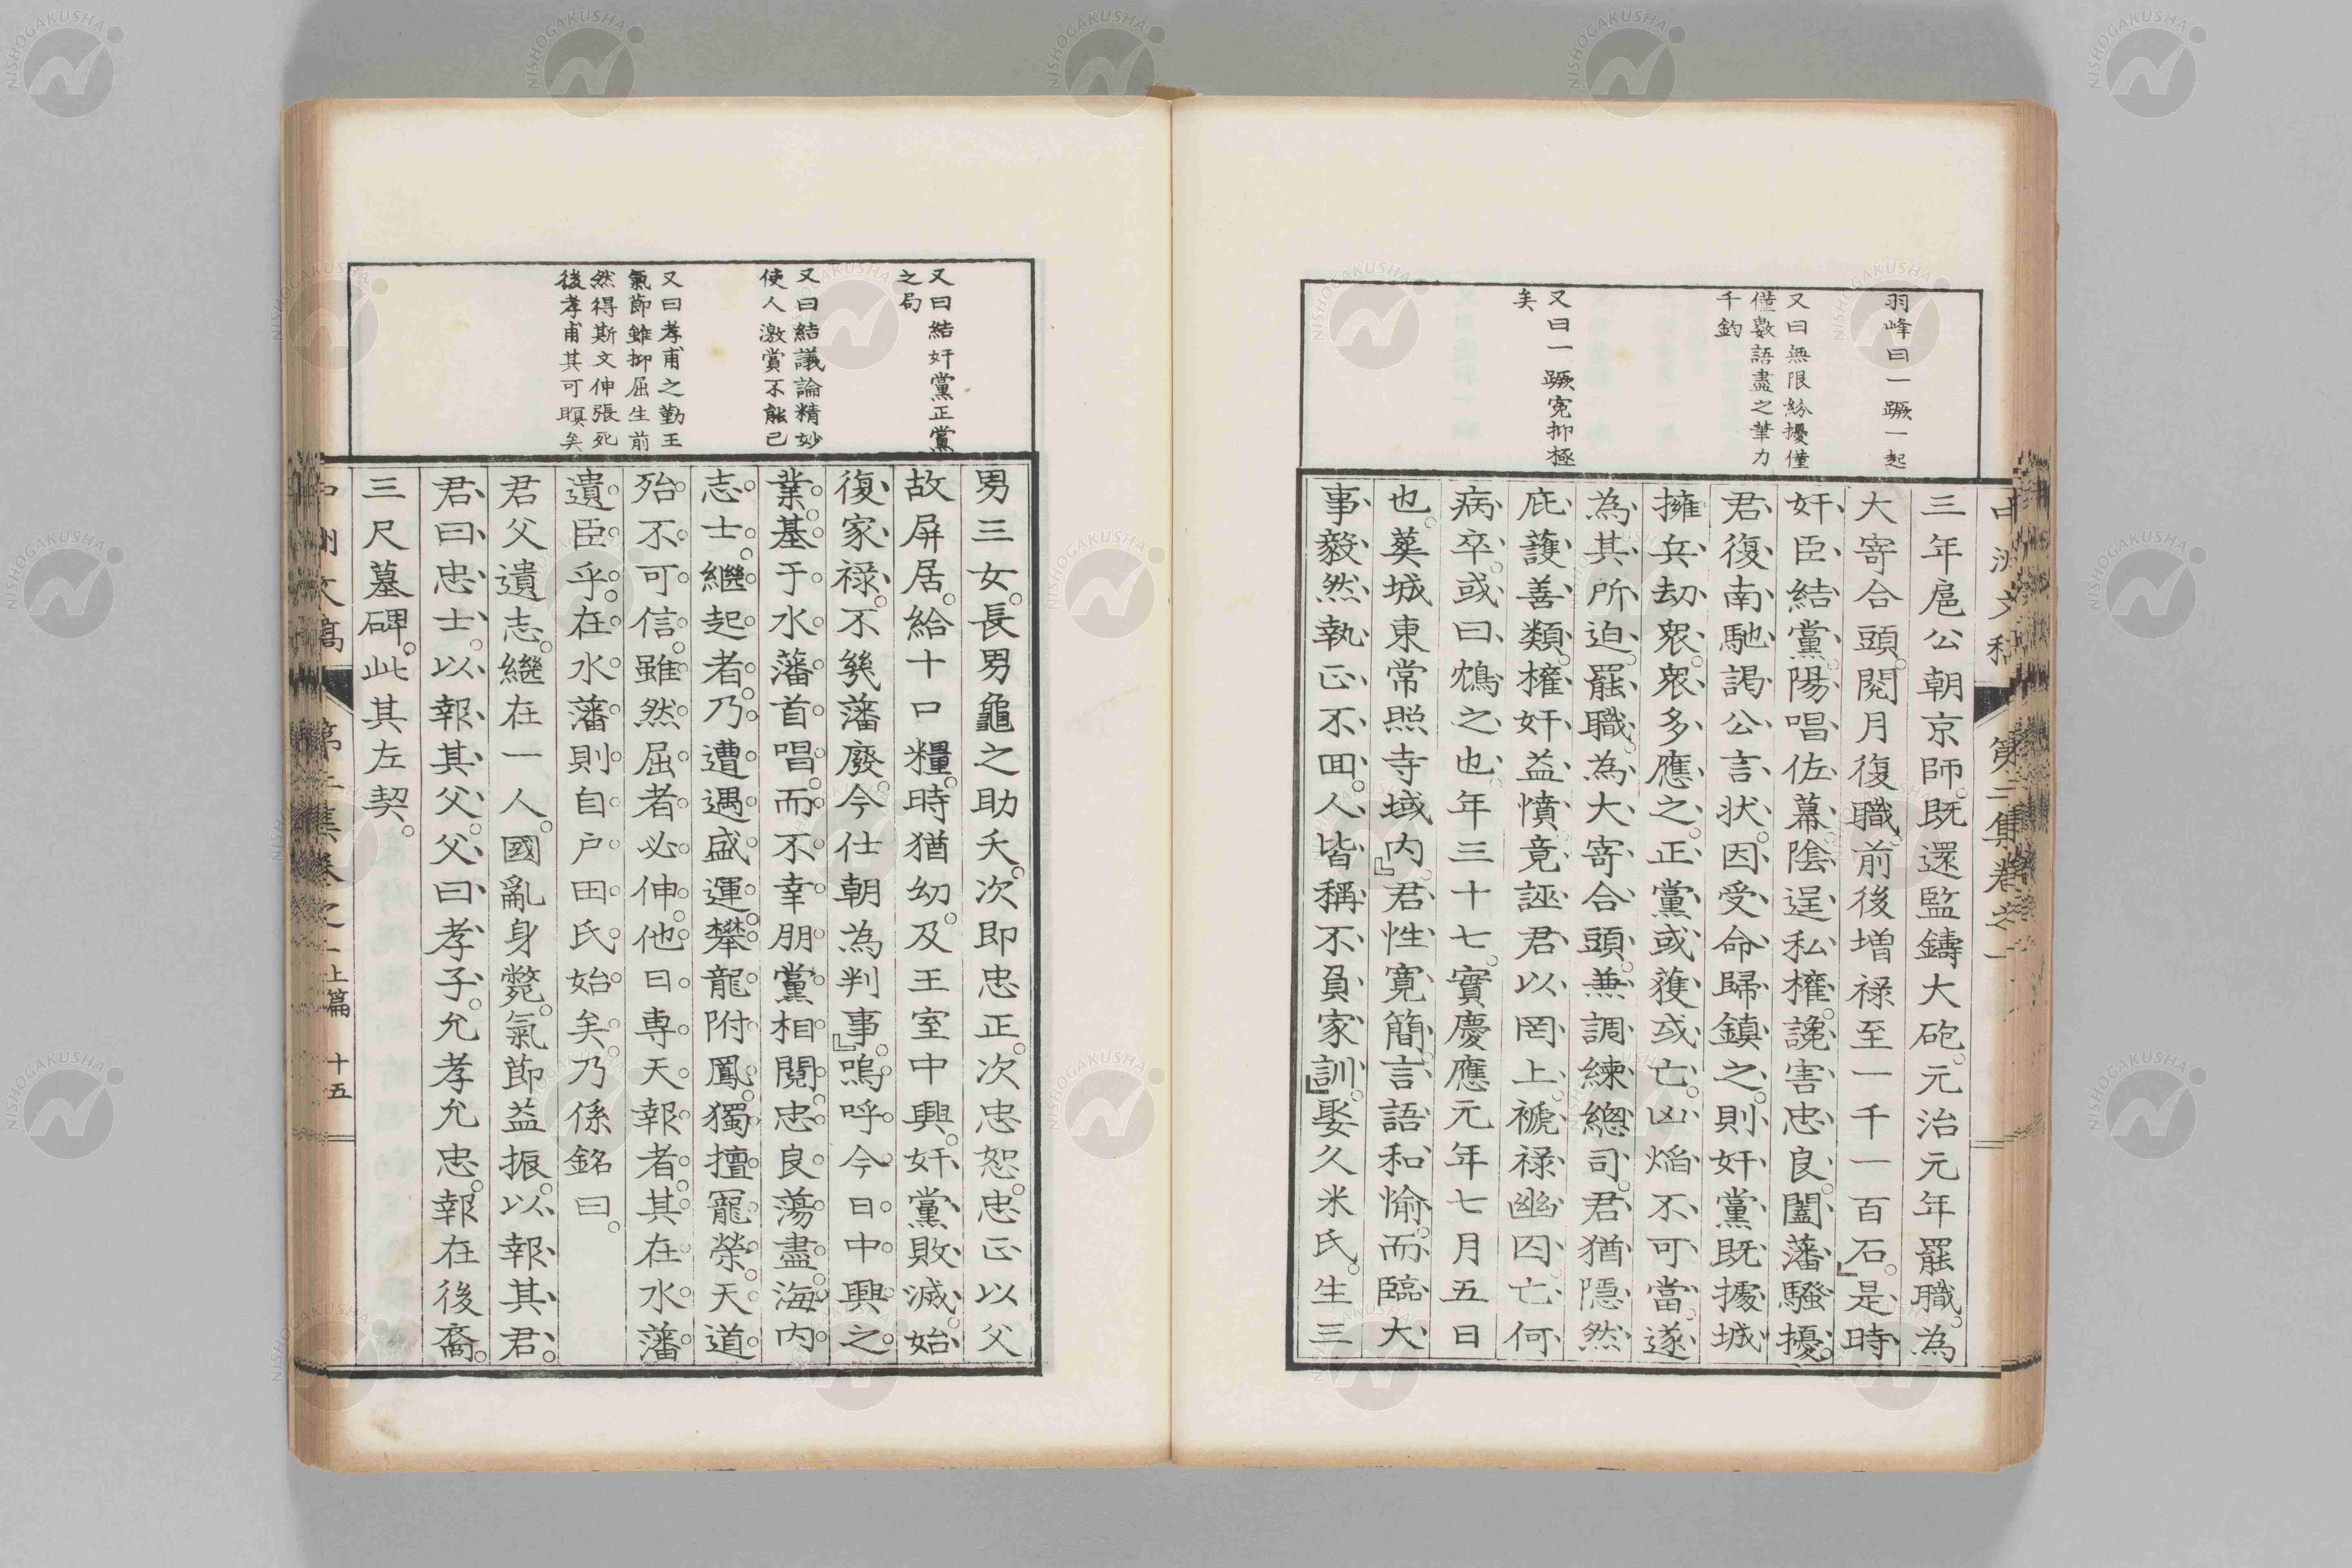 羽峰曰一蹶一起
又曰無限紛擾僅
僅數語盡之筆力
千鈞
又曰一蹶寃抑極
矣
三年扈公朝京師。既還監鑄大砲。元治元年罷職。為
大寄合頭。閱月復職。前後増禄至一千一百石。』是時
奸臣結黨。陽唱佐幕陰逞私權。讒害忠良。闔藩騷擾。
君復南馳謁公言状。因受命歸鎮之。則奸黨既據城
擁兵劫衆。衆多應之。正黨或獲或亡。凶焰不可當。遂
為其所迫。罷職。為大寄合頭。兼調練總司。君猶隱然
庇護善類。權奸益憤竟誣君以罔上。褫禄幽囚。亡何
病卒。或曰鴆之也。年三十七。實慶應元年七月五日
也。葬城東常照寺域内。』君性寛簡。言語和愉。而臨大
事毅然執正不回。人皆稱不負家訓。』娶久米氏。生三
又曰結奸黨正黨
之局
又曰結議論精妙
使人激賞不能已
又曰孝甫之勤王
氣節雖抑屈生前
然得斯文伸張死
後孝甫其可瞑矣
男三女。長男龜之助夭。次即忠正。次忠恕。忠正以父
故屏居。給十口糧。時猶幼。及王室中興。奸黨敗滅。始
復家禄。不幾藩廢。今仕朝為判事。』嗚呼今日中興之
業。基于水藩首唱。而不幸朋黨相鬩。忠良蕩盡。海内
志士。繼起者。乃遭遇盛運。攀龍附鳳。獨擅寵榮。天道
殆不可信。雖然屈者必伸。他日専天報者。其在水藩
遺臣乎。在水藩則自戸田氏始矣。乃係銘曰。
君父遺志。繼在一人。國亂身斃。氣節益振。以報其君。
君曰忠士。以報其父。父曰孝子。允孝允忠。報在後裔。
三尺墓碑。此其左契。
第二集卷之一上篇 十五